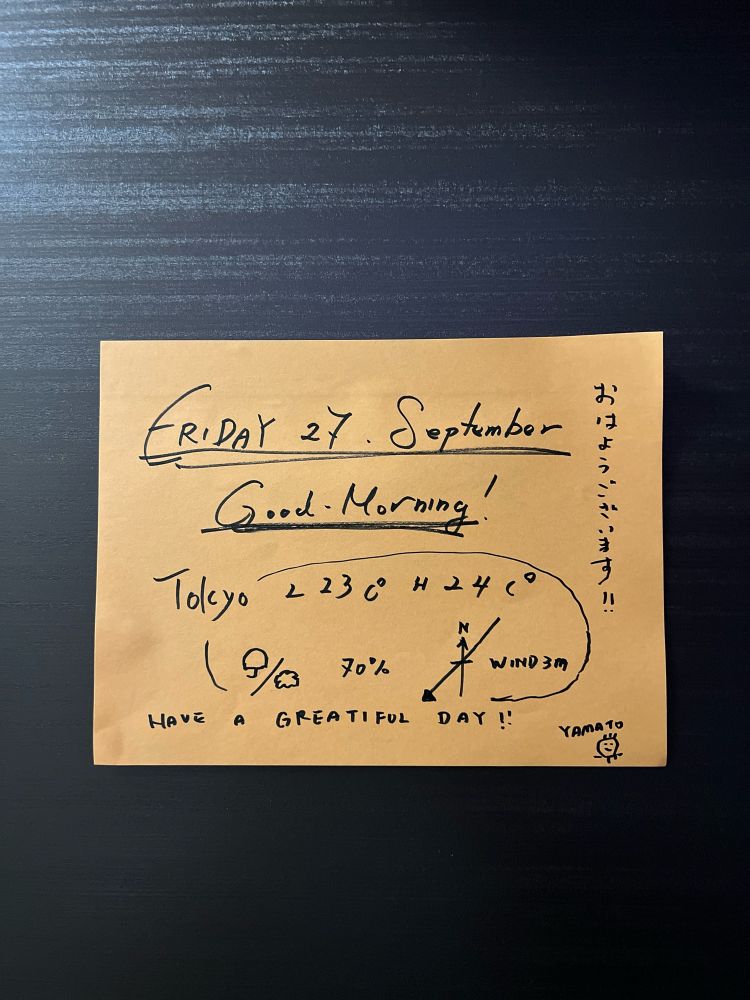 FRIDAY 27. September
Good-Morning!
Tokyo L 23 C° H 24 C°
70%
N
WIND 3M
HAVE A GREATIFUL DAY!!
YAMATO
おはようございます!!